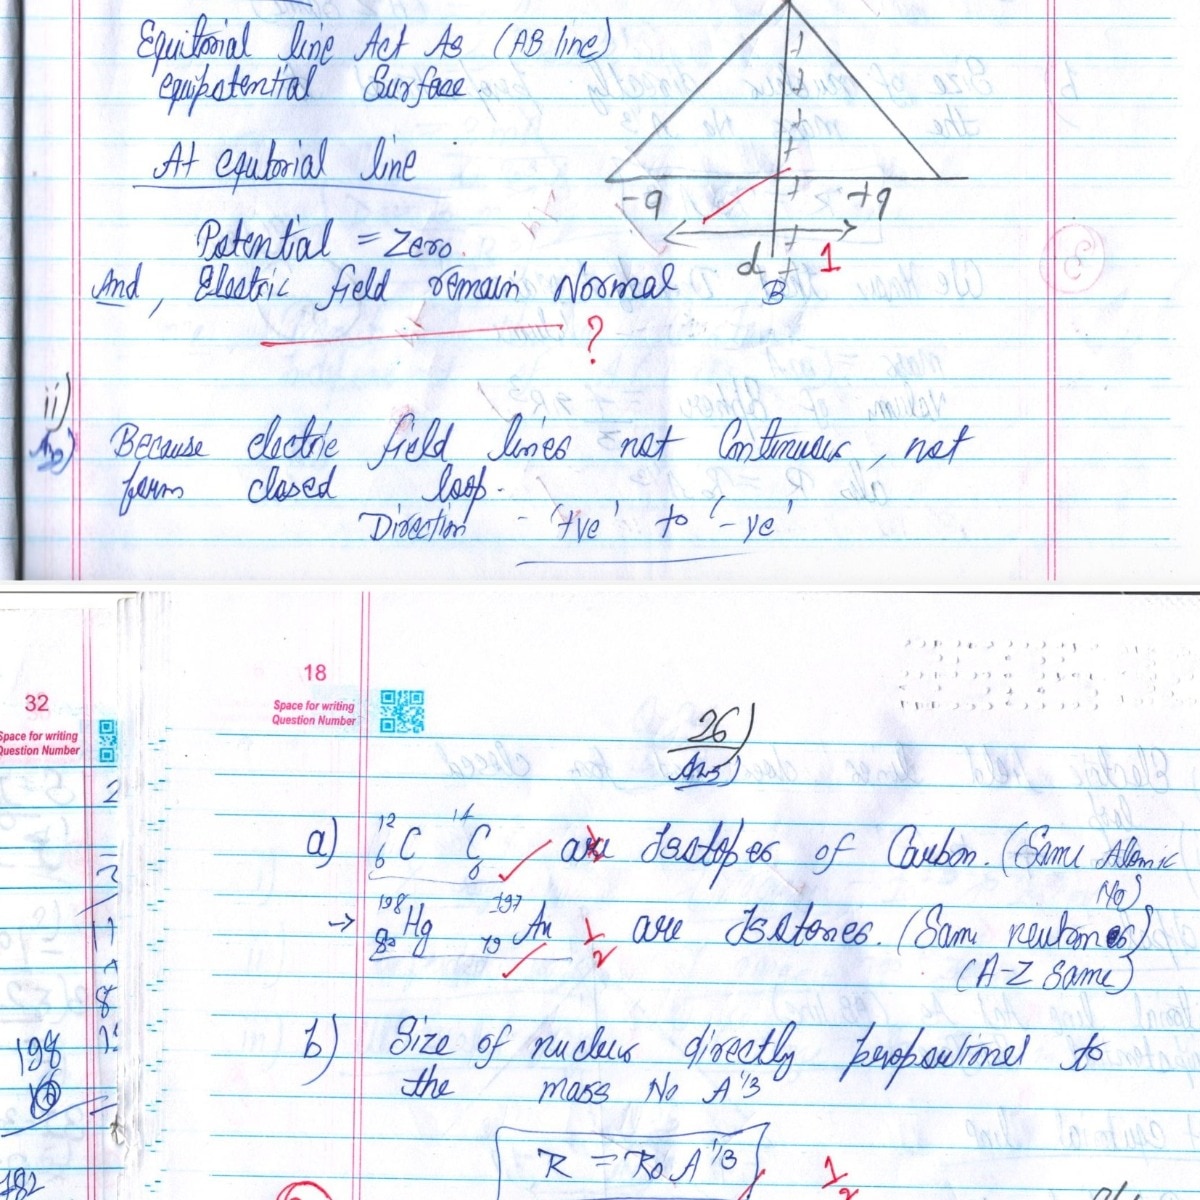 Equitorial line Act As (AB line)
equipotential Surface
At equtorial line
Potential = Zero.
And, Electric field remain Normal
?
-q +q
d 1
B
ii)
Ans)
Because electric field lines not Continuous, not
form closed loop.
Direction - '+ve' to '-ve'
18
Space for writing
Question Number
32
Space for writing
Question Number
26)
Ans)
a) 12 6 C 14 6 C are Isotopes of Carbon. (Same Atomic
No)
→ 198 80 Hg 197 79 Au 1/2 are Isotones. (Same neutrones)
(A-Z Same)
b) Size of nucleus directly propotional to
the mass No A^1/3
R = Ro A^1/3
1/2
198
182